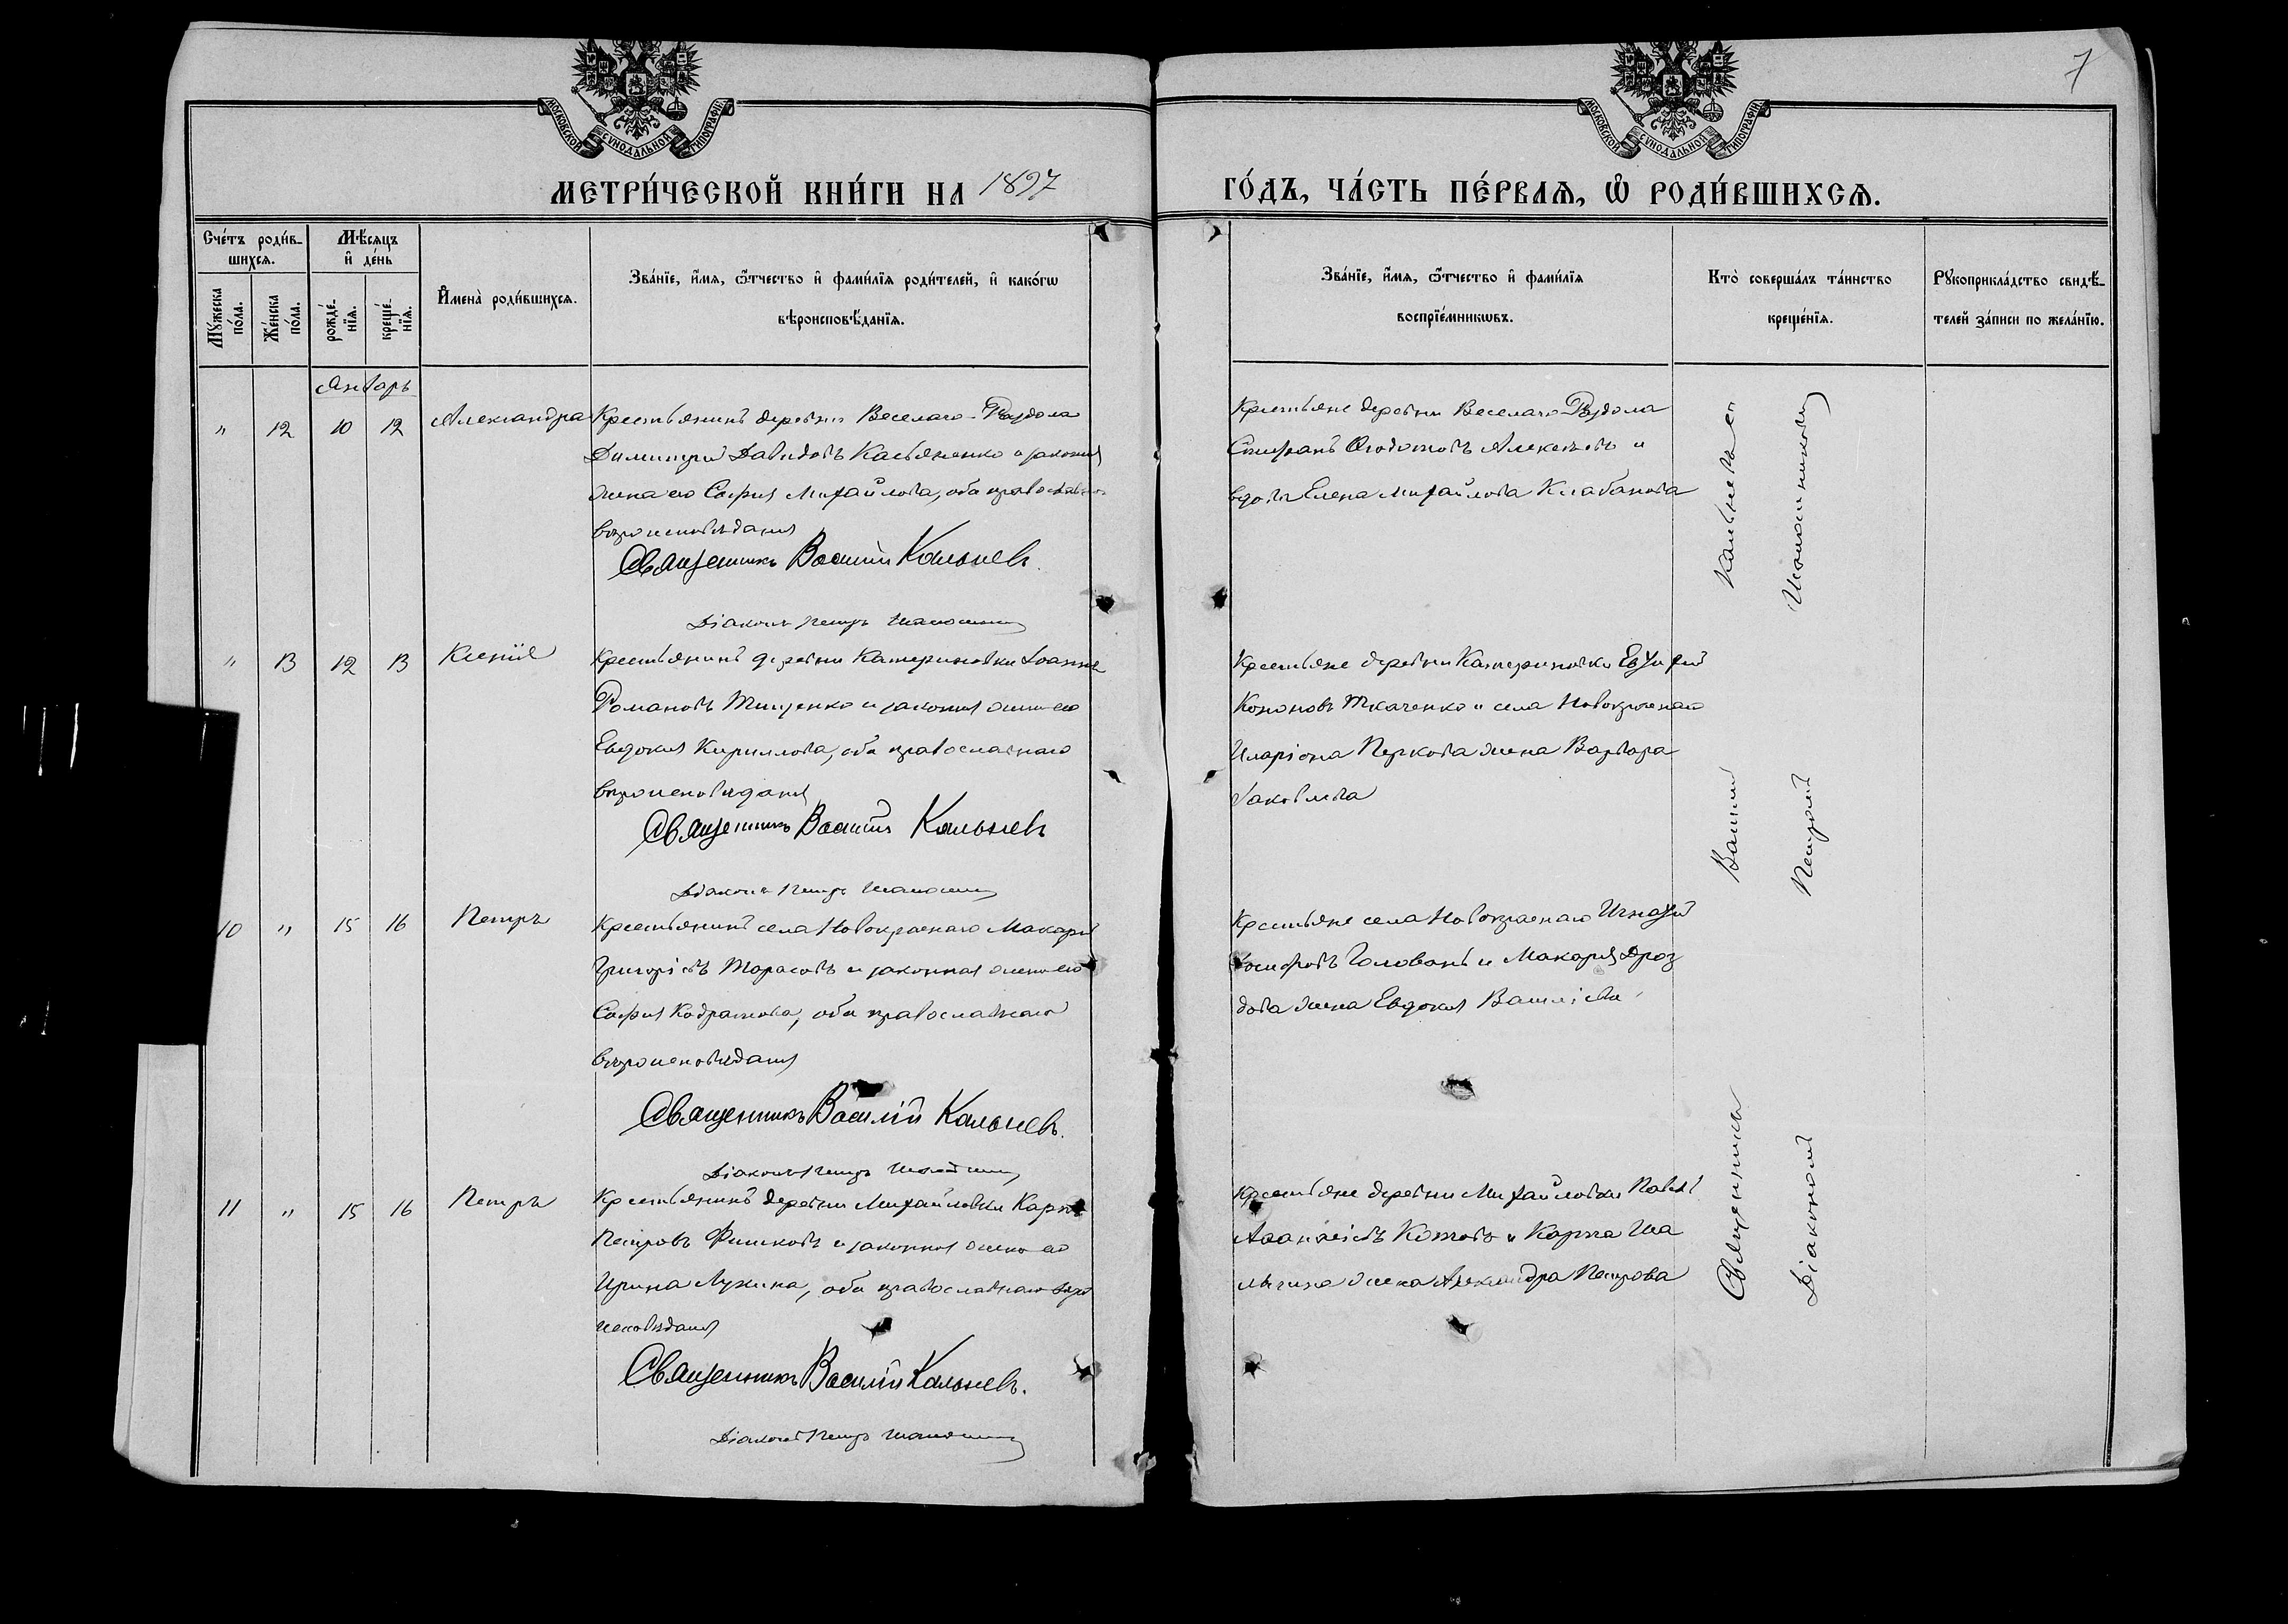 7
МОСКОВСКОЙ СѴНОДАЛЬНОЙ ТИПОГРАФІИ.
МОСКОВСКОЙ СѴНОДАЛЬНОЙ ТИПОГРАФІИ.
МЕТРИ́ЧЕСКОЙ КНИ́ГИ НА 1897
ГО́ДЪ, ЧА́СТЬ ПЕ́РВАѦ, Ѽ РОДИ́ВШИХСѦ.
Сче́тъ роди́в-
шихсѧ.
Мꙋ́жеска по́ла.
Же́нска по́ла.
Мѣ́сѧцъ
и҆ де́нь
рожде́-нїѧ.
креще́-нїѧ.
И҆мена̀ роди́вшихсѧ.
Зва́нїе, и҆́мѧ, ѻ҆́тчество и҆ фами́лїѧ роди́телей, и҆ како́гѡ
вѣроисповѣ́данїѧ.
Зва́нїе, и҆́мѧ, ѻ҆́тчество и҆ фами́лїѧ
воспрїе́мникѡвъ.
Кто̀ соверша́лъ та́инство
креще́нїѧ.
Рꙋкоприкла́дство свидѣ́-
телей за́писи по жела́нїю.
Январь
" 12 10 12 Александра
Крестьянинъ деревни Веселаго-Раздола
Димитрій Давидовъ Касьяненко и законная
жена его Софія Михайлова, оба православнаго
вѣроисповѣданія
Священникъ Василій Кальневъ.
Діаконъ Петръ
Крестьяне деревни Веселаго-Раздола
Стефанъ Ѳеодотовъ Алексѣевъ и
вдова Елена Михайлова
" 13 12 13 Ксенія
Крестьянинъ деревни Катериновки Іоаннъ
Романовъ Тищенко и законная жена его
Евдокія Кириллова, оба православнаго
вѣроисповѣданія
Священникъ Василій Кальневъ
Діаконъ Петръ
Крестьяне деревни Катериновки Евфимій
Кононовъ Ткаченко и села Новокраснаго
Иларіона Перкова жена Варвара
Іаковлева
10 " 15 16 Петръ
Крестьянинъ села Новокраснаго Макарій
Григоріевъ Тарасовъ и законная жена его
Софія Кодратова, оба православнаго
вѣроисповѣданія
Священникъ Василій Кальневъ.
Діаконъ Петръ
Крестьяне села Новокраснаго Игнатій
Іосифовъ Голованъ и Макарія Дроз
дова жена Евдокія Васильева
11 " 15 16 Петръ
Крестьянинъ деревни Михайловки Карпъ
Петровъ Фишковъ и законная жена его
Ирина Лукина, оба православнаго вѣро
исповѣданія
Священникъ Василій Кальневъ.
Діаконъ Петръ
Крестьяне деревни Михайловки Павелъ
Аѳанасіевъ Котовъ и Карпа Ша
жена Александра Петрова
Священникъ Василій Кальневъ съ
Діакономъ Петромъ